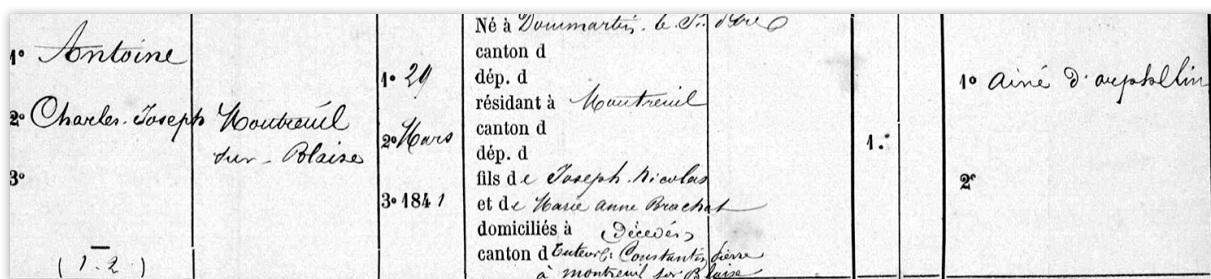 1º Antoine
2º Charles-Joseph
3º
(1-2)
Montreuil
sur-Blaise
1º 29
2º Mars
3º 1841
Né à Dommartin-le-St.
canton d
dép. d
résidant à Montreuil
canton d
dép. d
fils de Joseph-Nicolas
et de Marie anne Brachat
domiciliés à Décédés
canton d Tuteur: Constantin pierre
à montreuil sur Blaise
1.
1º ainé d'orphellin
2º